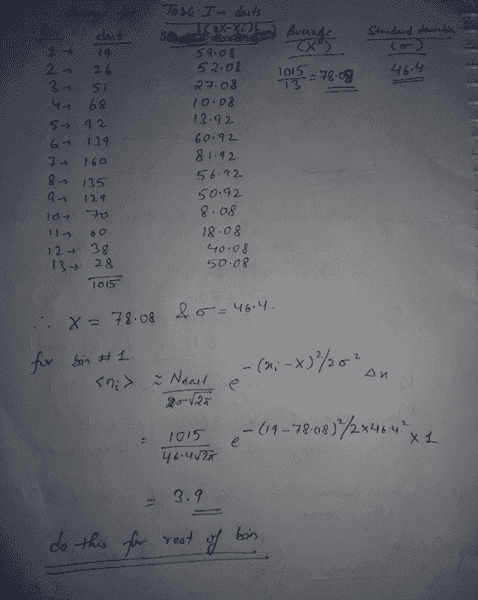 Table I → darts
dart |(X-xi)| Average (X) Standard deviation (σ)
1 → 19 59.08 1015/13 = 78.08 46.4
2 → 26 52.08
3 → 51 27.08
4 → 68 10.08
5 → 92 13.92
6 → 139 60.92
7 → 160 81.92
8 → 135 56.92
9 → 129 50.92
10 → 70 8.08
11 → 60 18.08
12 → 38 40.08
13 → 28 50.08
1015
∴ X = 78.08 & σ = 46.4.
for bin # 1.
<ni> ≈ Ndart/σ√2π e -(xi-X)²/2σ² Δx
= 1015/46.4√2π e -(19-78.08)²/2×46.4² × 1
= 3.9
do this for rest of bin